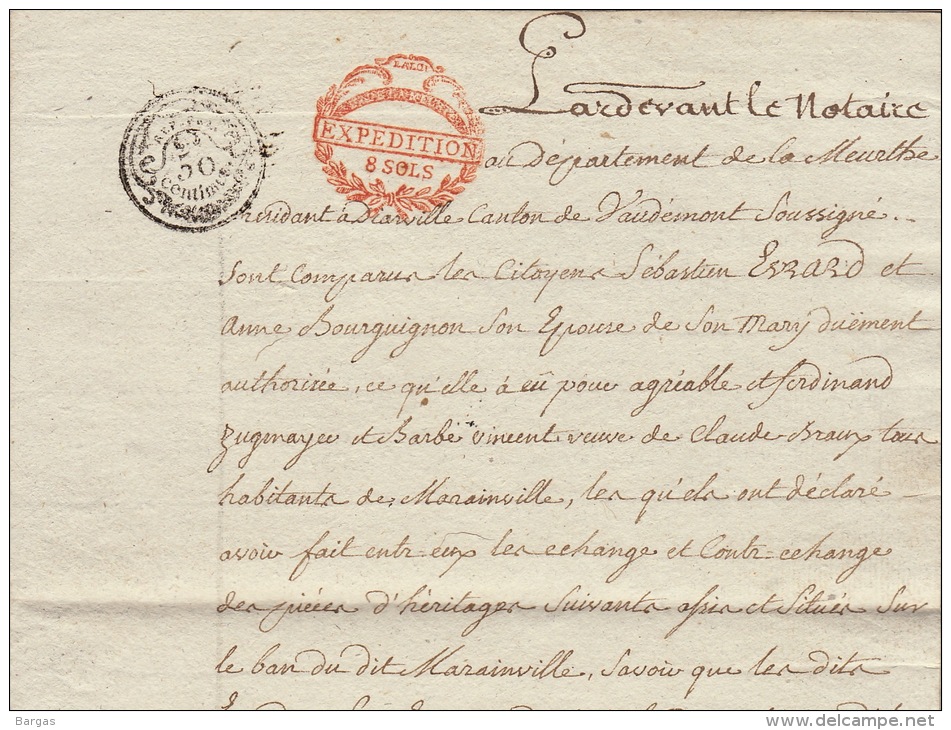 LALOI
EXPEDITION
8 SOLS
REP. FRA.
50
centimes
Pardevant le Notaire
au Département de la Meurthe
résidant à Diarville Canton de Vaudémont Soussigné.
sont comparus les Citoyens Sébastien EVRARD et
Anne Bourguignon son Epouse de son Mary duëment
authorisée, ce qu'elle à eû pour agréable et ferdinand
Zugmayer et Barbe vincent veuve de Claude Braux tous
habitants de Marainville, les qu'els ont déclaré
avoir fait entr-eux les echange et Contr-echange
des pièces d'héritages suivants assis et situés sur
le ban du dit Marainville, savoir que les dits
Bargas
www.delcampe.net